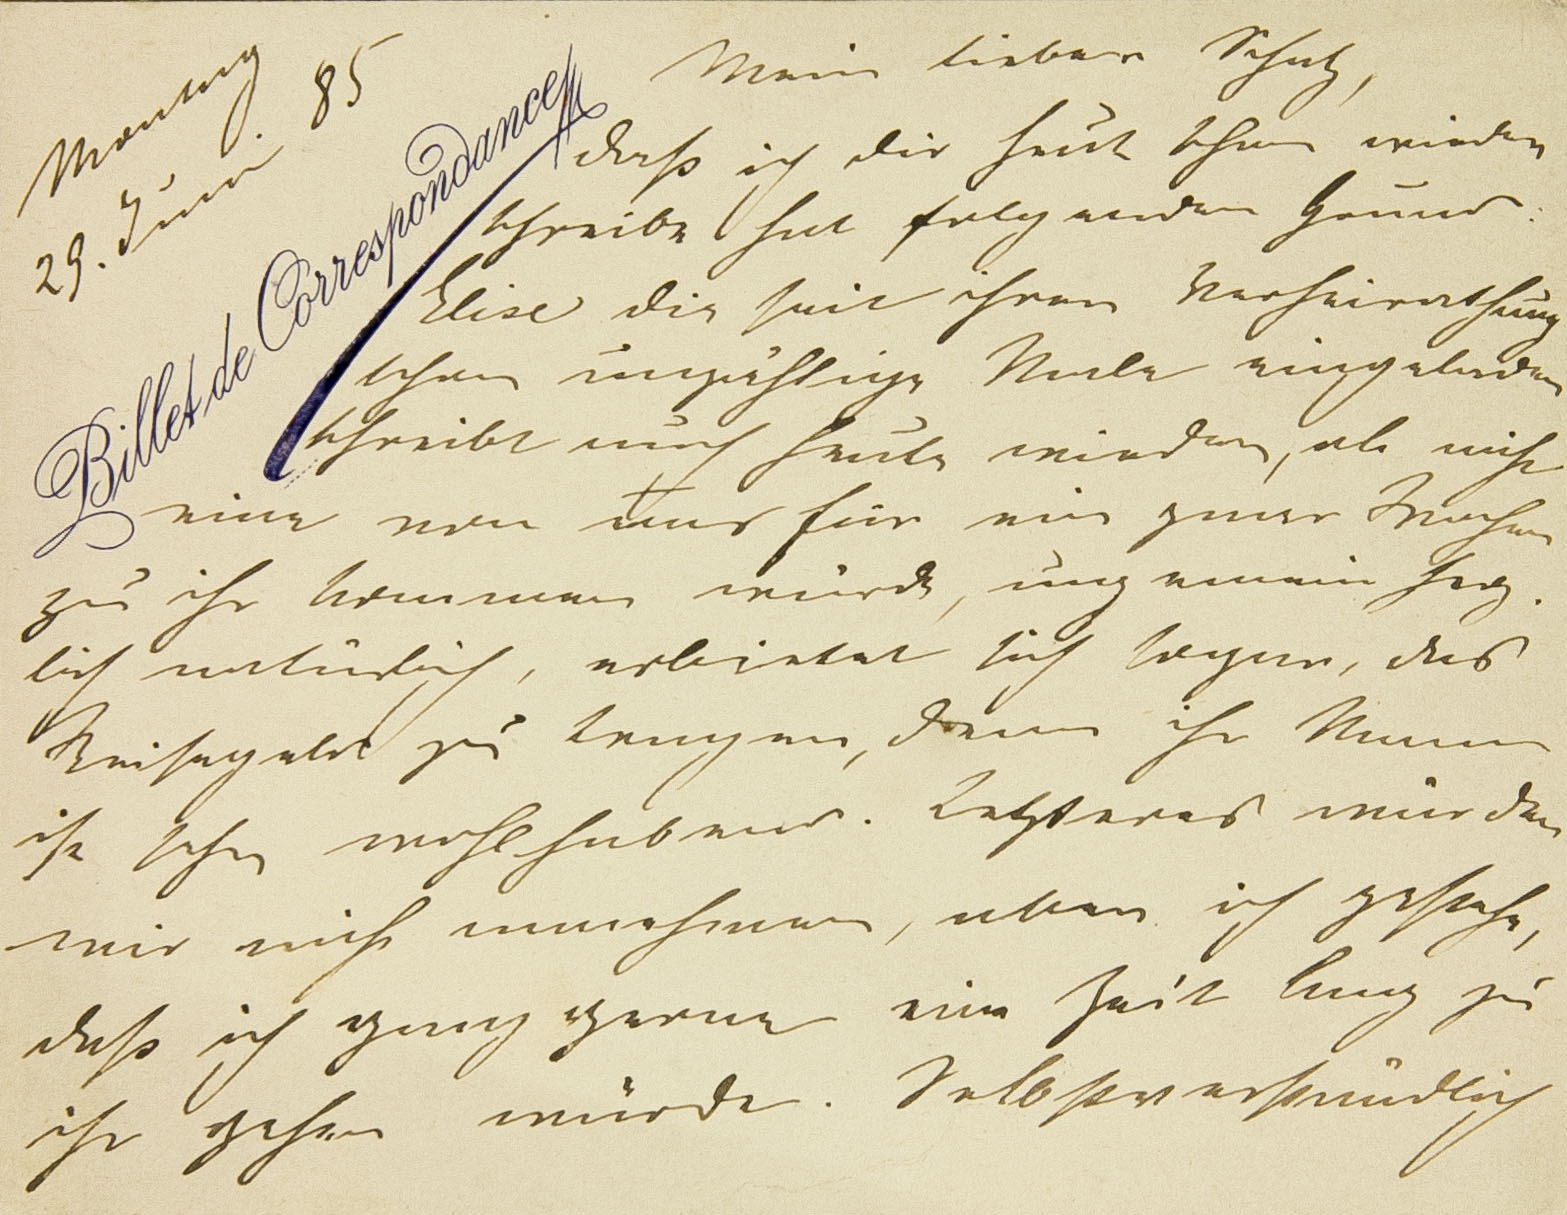 Montag
29. Juni. 85
Billet de Correspondance
Mein lieber Schatz,
daß ich dir heut schon wieder
schreibe hat folgenden Grund:
Elise die seit ihrer Verheirathung
schon unzählige Male eingeladen
schreibt auch heute wieder, ob nicht
eine von uns für ein paar Wochen
zu ihr kommen würde, ungemein herz-
lich natürlich, erbietet sich sogar, das
Reisegeld zu tragen, denn ihr Mann
ist sehr wohlhabend. Letzteres würden
wir nicht annehmen, aber ich gestehe,
daß ich ganz gerne eine Zeit lang zu
ihr gehen würde. Selbstverständlich